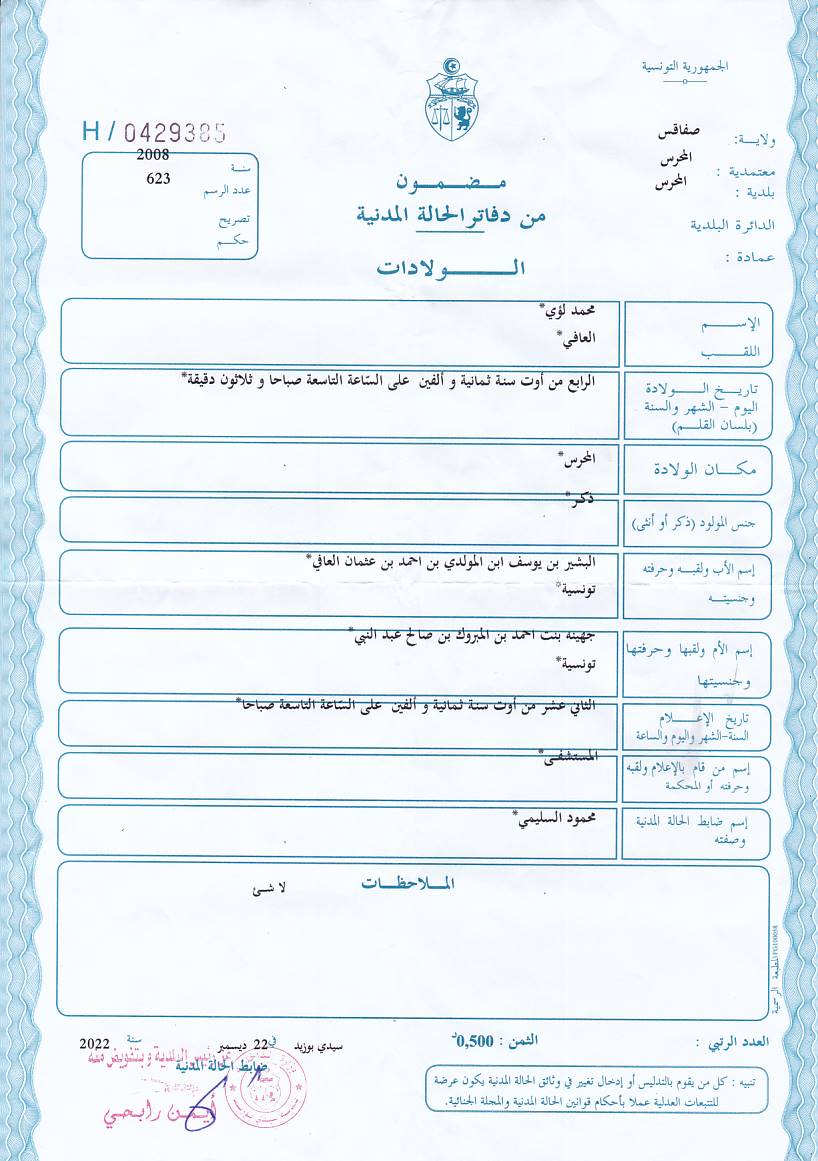 الجمهورية التونسية
H / 0429385
ولايـــة: صفاقس
معتمدية : المحرس
بلدية : المحرس
الدائرة البلدية
عمادة :
سنة 2008
عدد الرسم 623
تصريح
حكـــم
مــضــمـــون
من دفاتر الحالة المدنية
الـــــولادات
الإســـــم محمد لؤي*
اللقـــب العافي*
تاريــخ الـــــولادة الرابع من أوت سنة ثمانية و ألفين على السّاعة التاسعة صباحا و ثلاثون دقيقة*
اليوم – الشهر والسنة
(بلسان القلـــم)
مكـــان الولادة المحرس*
جنس المولود (ذكر أو أنثى) ذكر*
إسم الأب ولقبـــه وحرفته البشير بن يوسف ابن المولدي بن احمد بن عثمان العافي*
وجنسيتـــه تونسية*
إسم الأم ولقبها وحرفتها جهينه بنت احمد بن المبروك بن صالح عبد النبي*
وجنسيتها تونسية*
تاريخ الإعـــــلام الثاني عشر من أوت سنة ثمانية و ألفين على السّاعة التاسعة صباحا*
السنة-الشهر واليوم والساعة
إسم من قام بالإعلام ولقبه المستشفى*
وحرفته أو المحكمة
إسم ضابط الحالة المدنية محمود السليمي*
وصفته
الملاحظـــات
لا شئ
المطبعة الرسمية
العدد الرتبي :
الثمن : 0,500د
سيدي بوزيد في 22 ديسمبر سنة 2022
عن رئيس البلدية وبتفويض منه
ضابط الحالة المدنية
أيمـن رابحي
تنبيه : كل من يقوم بالتدليس أو إدخال تغيير في وثائق الحالة المدنية يكون عرضة
للتتبعات العدلية عملا بأحكام قوانين الحالة المدنية والمجلة الجنائية.